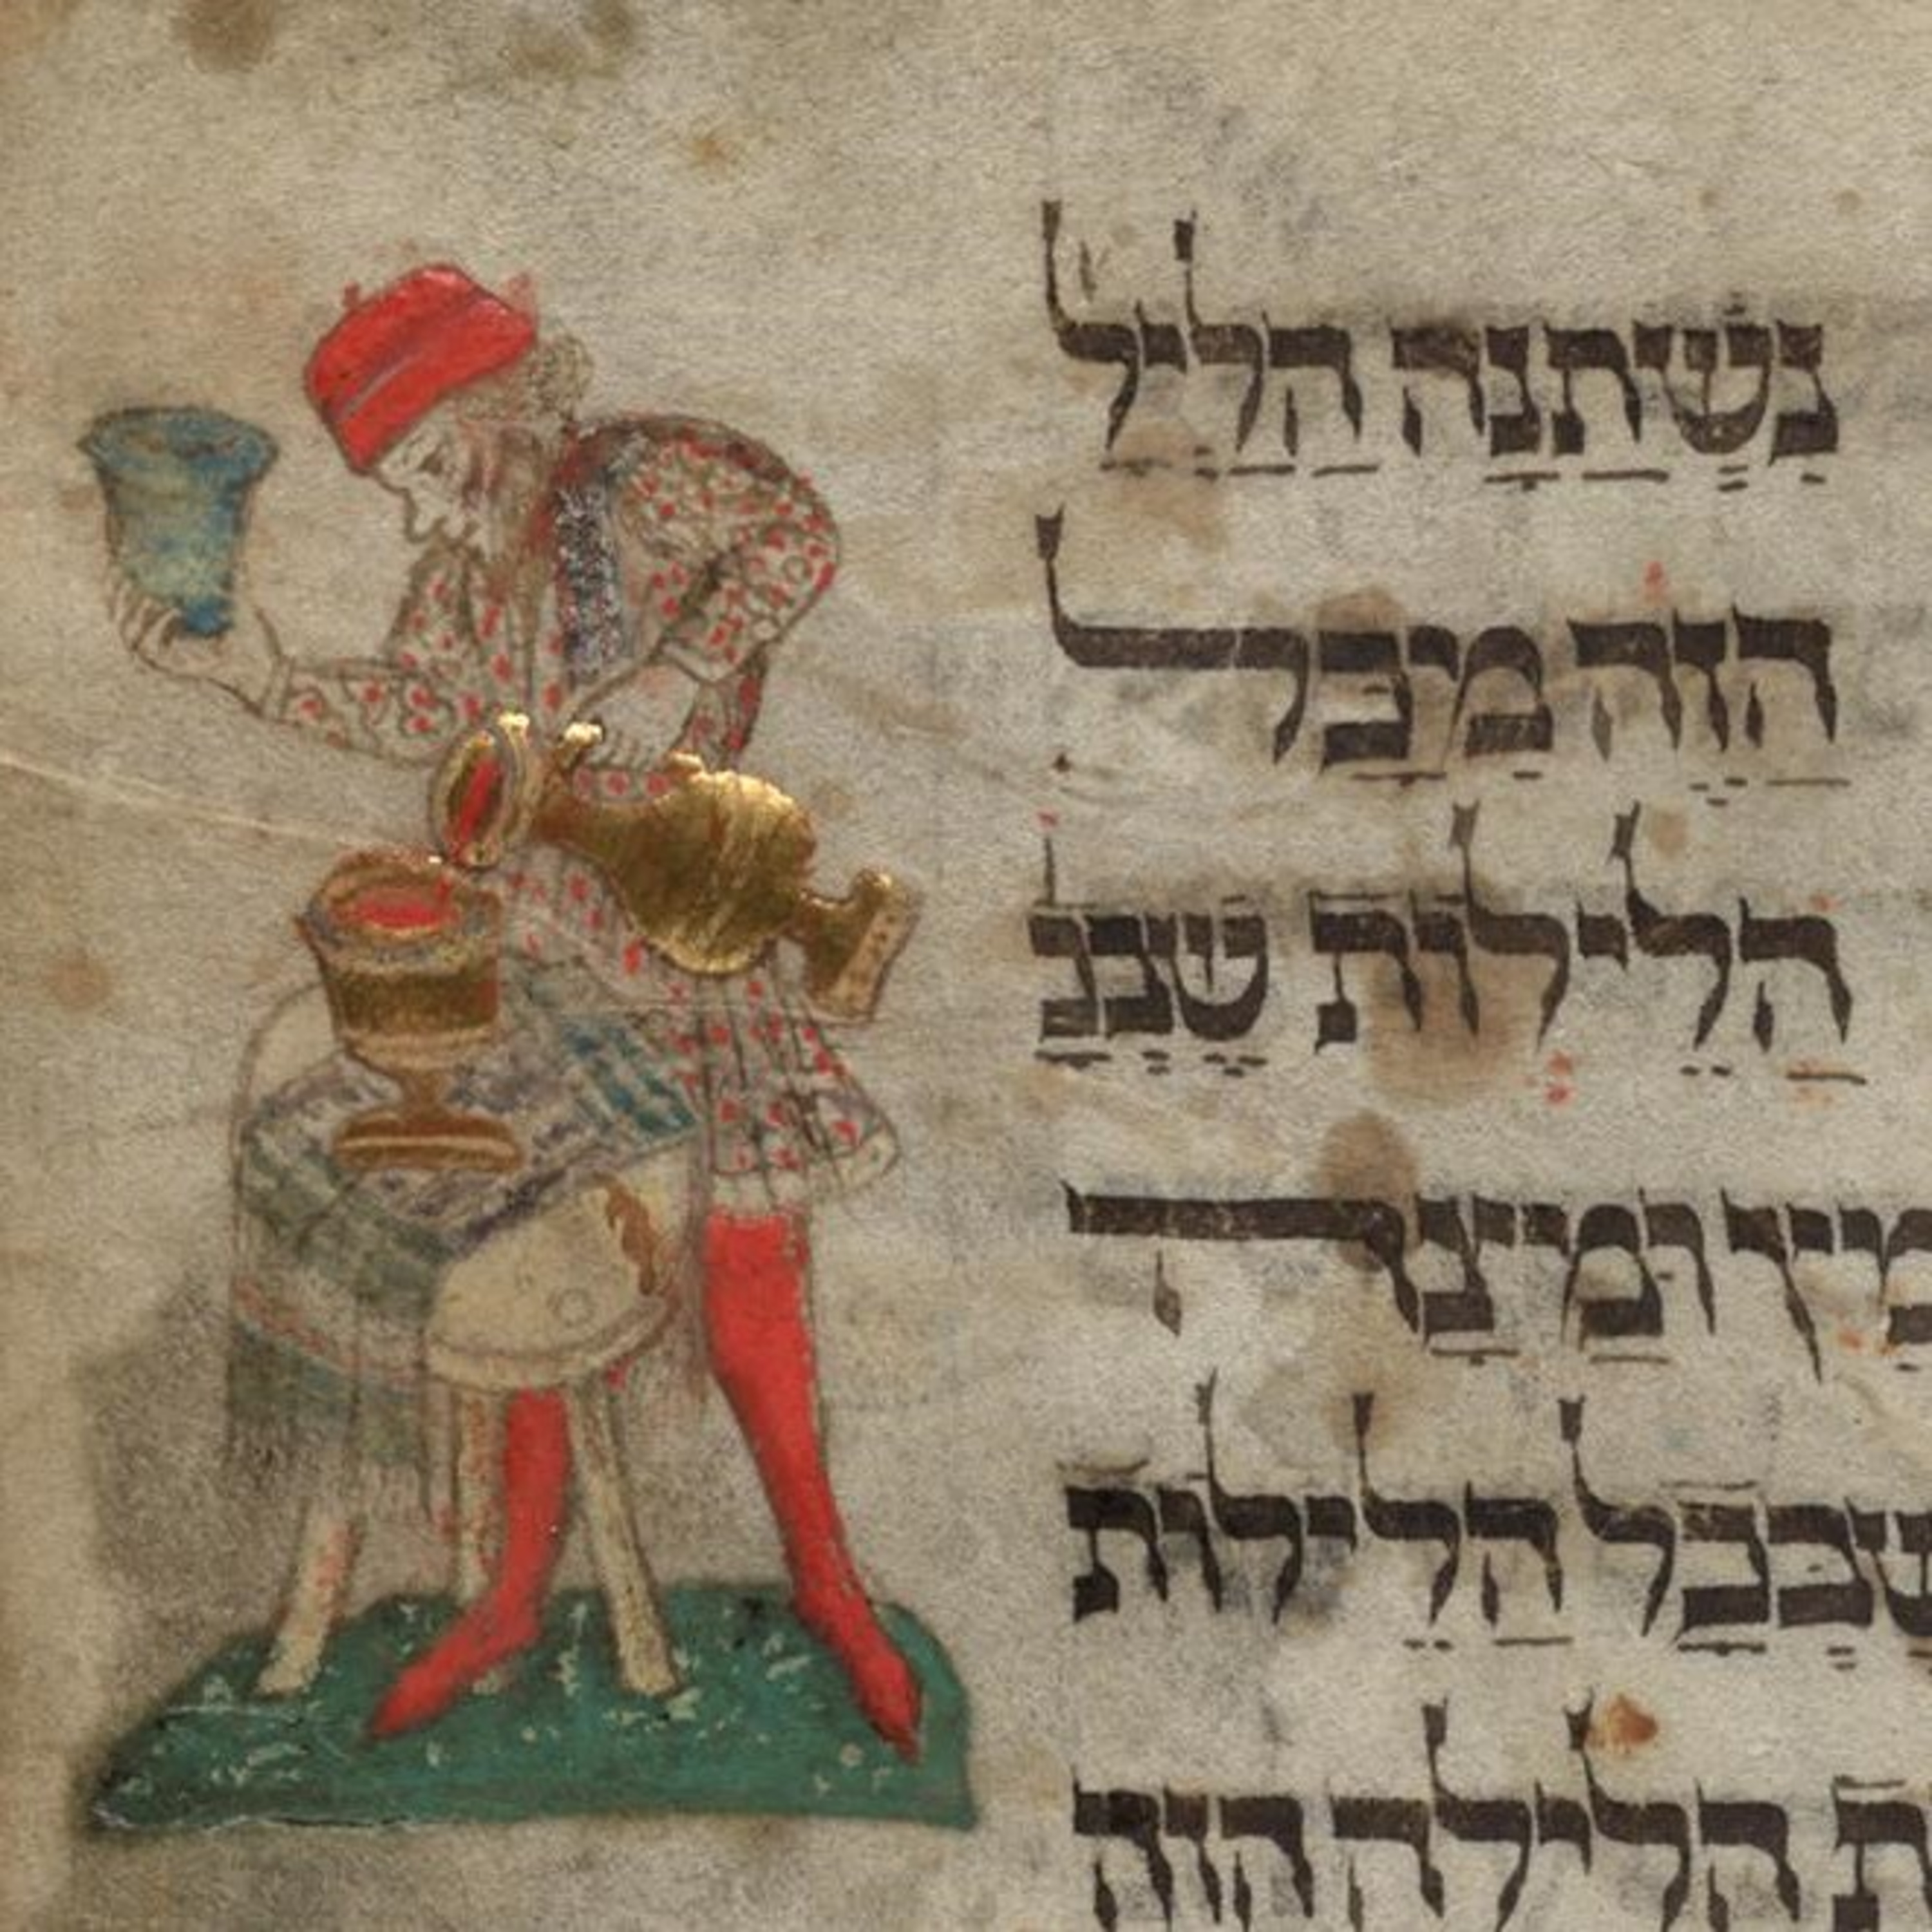 נִשְׁתַּנָה הַלַיִל
הַזֶה מִכָּל
הַלֵילוֹת שֶׁבְּכָ
מֵץ וּמַצָה
שֶׁבְּכָל הַלֵילוֹת
ת הלילה הזה